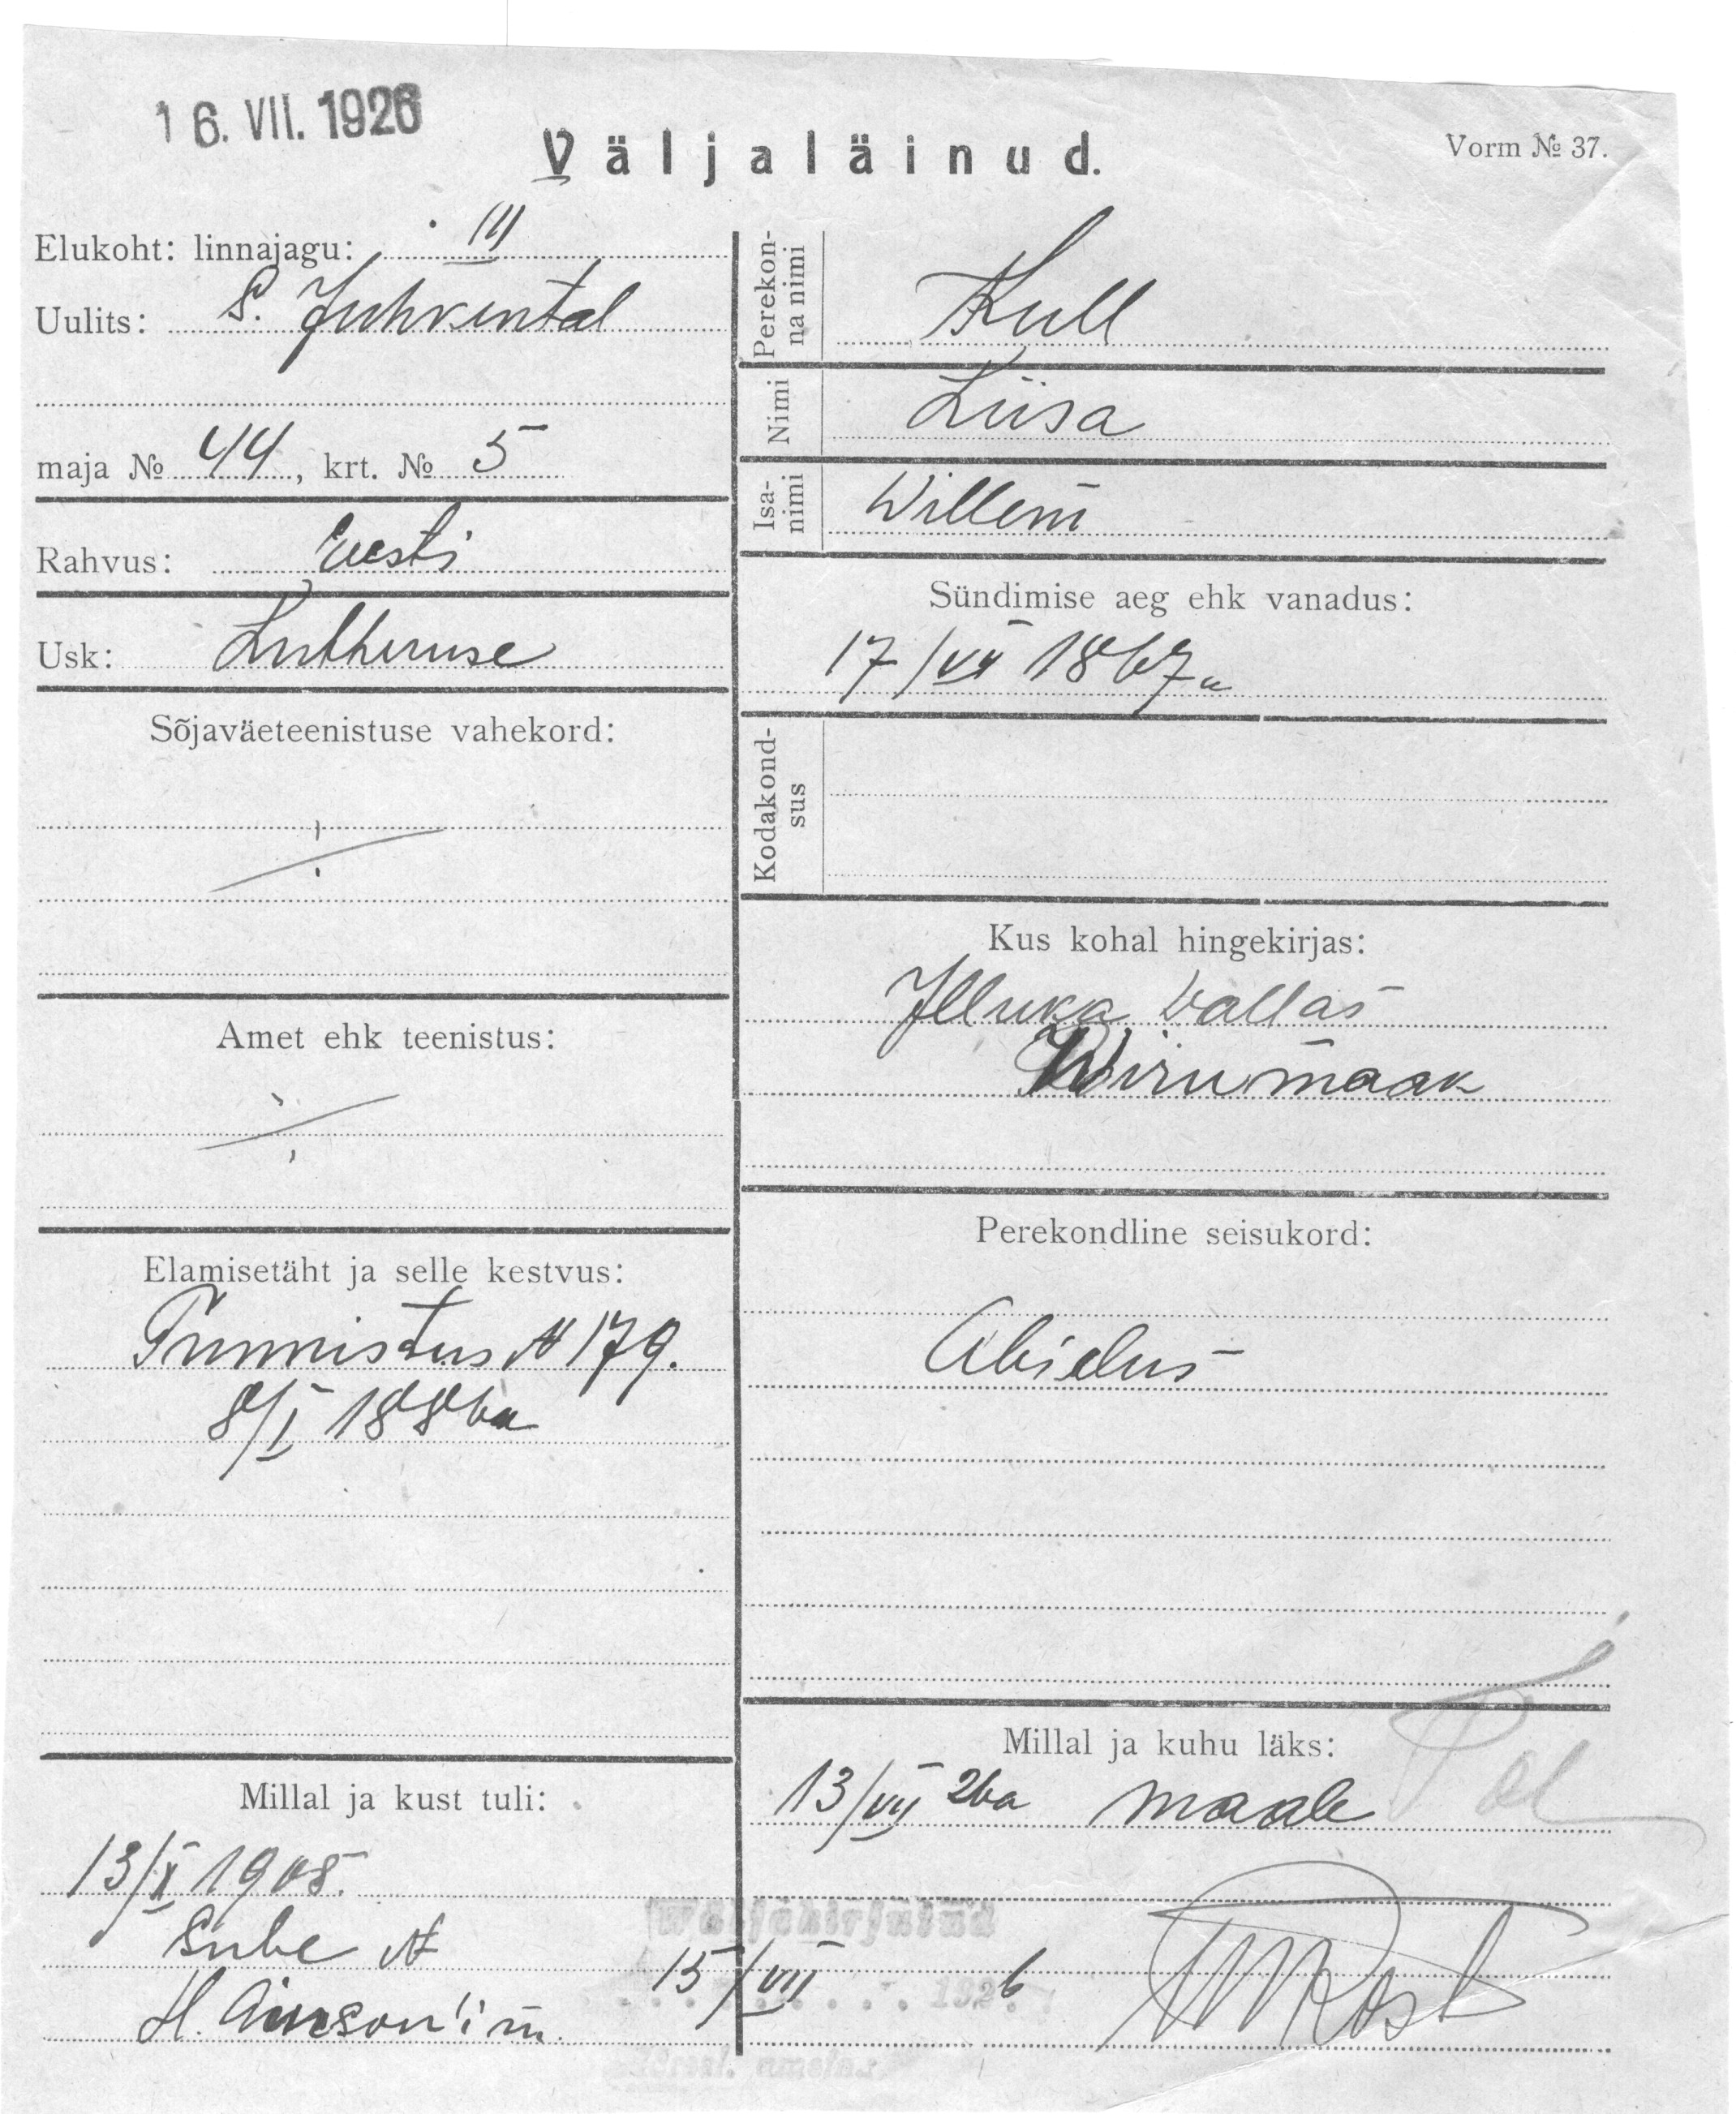 16. VII. 1926
Väljaläinud.
Vorm № 37.
Elukoht: linnajagu: III
Uulits: S. Juhkental
maja № 44, krt. № 5
Rahvus: eesti
Usk: Lutheruse
Sõjaväeteenistuse vahekord:
Amet ehk teenistus:
Elamisetäht ja selle kestvus:
Tunnistus N 179.
8/I 1886a
Millal ja kust tuli:
13/X 1908.
H.
Perekon-
na nimi Kull
Nimi Liisa
Isa-
nimi Willem
Sündimise aeg ehk vanadus:
17/VII 1867a
Kodakond-
sus
Kus kohal hingekirjas:
Illuka vallas
Wirumaak
Perekondline seisukord:
Abielus
Millal ja kuhu läks:
13/VII 26a maale
Väljakirjutatud
15/VII 1926